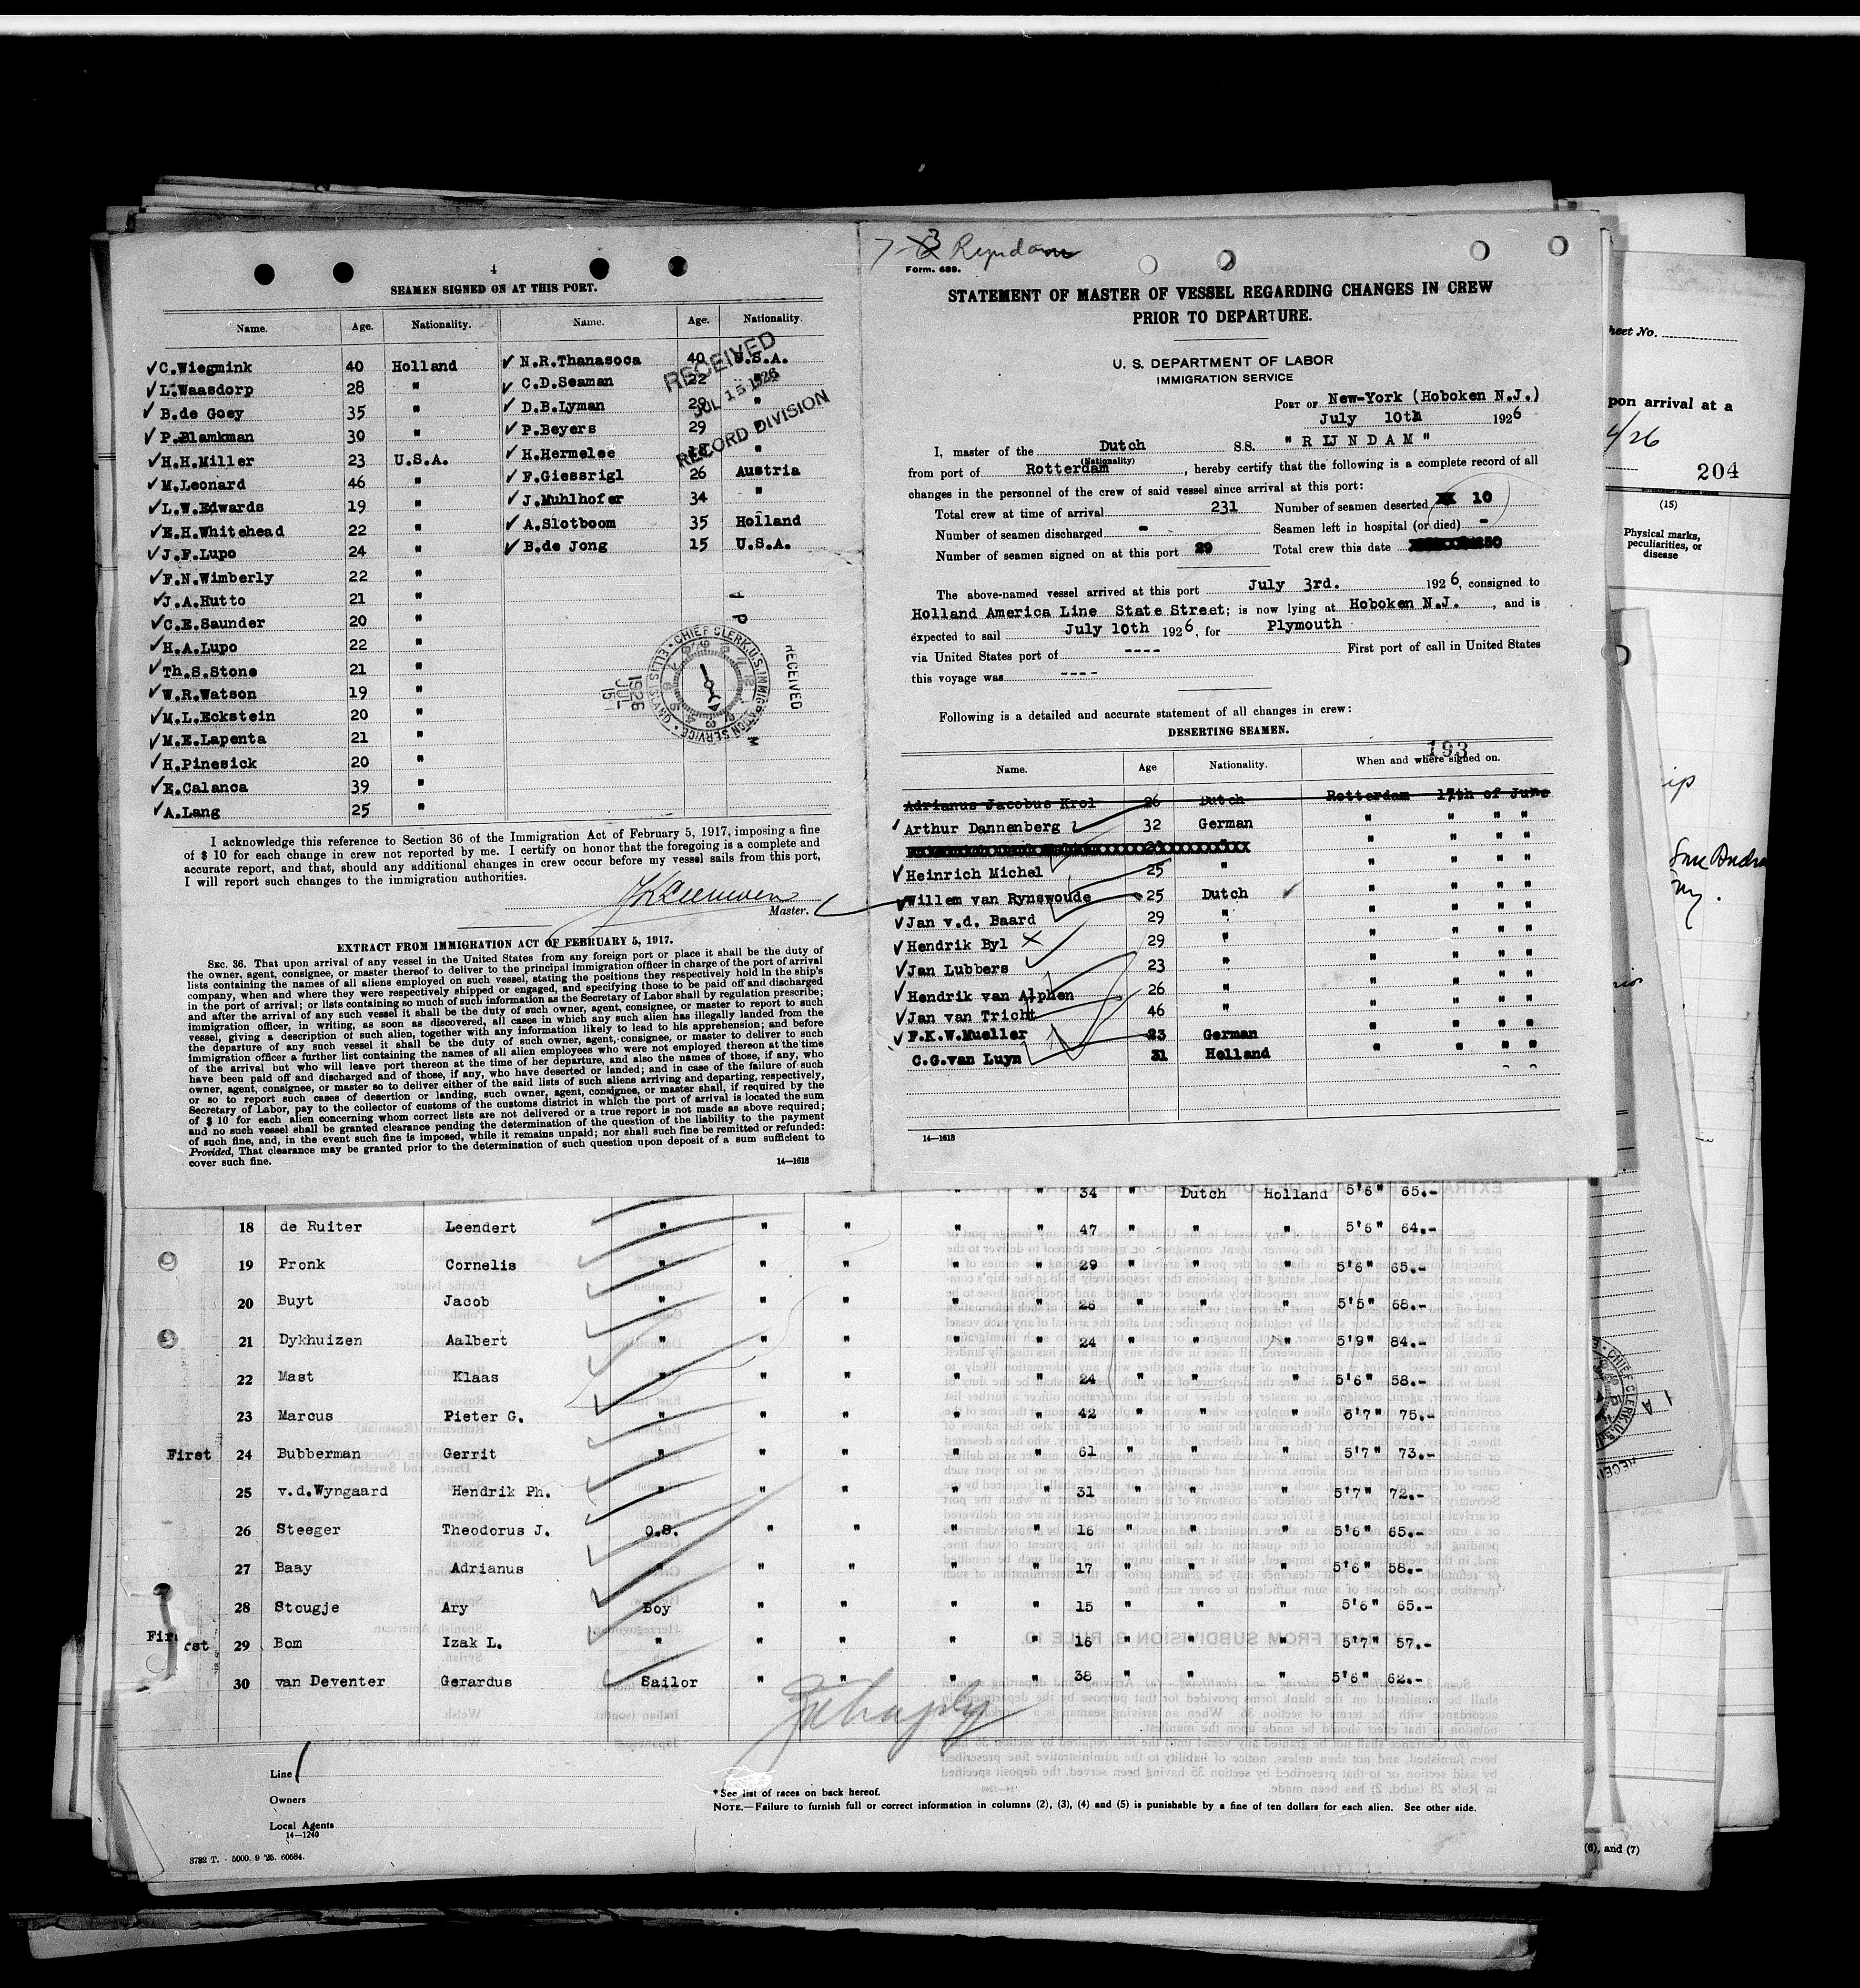 4
SEAMEN SIGNED ON AT THIS PORT.
Name. Age. Nationality. Name. Age. Nationality.
✓ C.Wiegmink 40 Holland ✓ N.R.Thanasoca 40 U.S.A.
✓ L.Waasdorp 28 " ✓ C.D.Seaman 22 "
✓ B.de Goey 35 " ✓ D.B.Lyman 29 "
✓ P.Blamkman 30 " ✓ P.Beyers 29 "
✓ H.H.Miller 23 U.S.A. ✓ H.Hermelee "
✓ M.Leonard 46 " ✓ F.Giessrigl 26 Austria
✓ L.W.Edwards 19 " ✓ J.Muhlhofer 34 "
✓ E.H.Whitehead 22 " ✓ A.Slotboom 35 Holland
✓ J.F.Lupo 24 " ✓ B.de Jong 15 U.S.A.
✓ F.N.Wimberly 22 "
✓ J.A.Hutto 21 "
✓ C.E.Saunder 20 "
✓ H.A.Lupo 22 "
✓ Th.S.Stone 21 "
✓ W.R.Watson 19 "
✓ M.L.Eckstein 20 "
✓ M.E.Lapenta 21 "
✓ H.Pinesick 20 "
✓ E.Calanca 39 "
✓ A.Lang 25 "
RECEIVED
JUL 15 1926
RECORD DIVISION
CHIEF CLERK, U.S. IMMIGRATION SERVICE
ELLIS ISLAND
RECEIVED
1926
JUL
15
P
M
I acknowledge this reference to Section 36 of the Immigration Act of February 5, 1917, imposing a fine
of $ 10 for each change in crew not reported by me. I certify on honor that the foregoing is a complete and
accurate report, and that, should any additional changes in crew occur before my vessel sails from this port,
I will report such changes to the immigration authorities.
Master.
EXTRACT FROM IMMIGRATION ACT OF FEBRUARY 5, 1917.
SEC. 36. That upon arrival of any vessel in the United States from any foreign port or place it shall be the duty of
the owner, agent, consignee, or master thereof to deliver to the principal immigration officer in charge of the port of arrival
lists containing the names of all aliens employed on such vessel, stating the positions they respectively hold in the ship's
company, when and where they were respectively shipped or engaged, and specifying those to be paid off and discharged
in the port of arrival; or lists containing so much of such information as the Secretary of Labor shall by regulation prescribe;
and after the arrival of any such vessel it shall be the duty of such owner, agent, consignee, or master to report to such
immigration officer, in writing, as soon as discovered, all cases in which any such alien has illegally landed from the
vessel, giving a description of such alien, together with any information likely to lead to his apprehension; and before
the departure of any such vessel it shall be the duty of such owner, agent, consignee, or master to deliver to such
immigration officer a further list containing the names of all alien employees who were not employed thereon at the time
of the arrival but who will leave port thereon at the time of her departure, and also the names of those, if any, who
have been paid off and discharged and of those, if any, who have deserted or landed; and in case of the failure of such
owner, agent, consignee, or master so to deliver either of the said lists of such aliens arriving and departing, respectively,
or so to report such cases of desertion or landing, such owner, agent, consignee, or master shall, if required by the
Secretary of Labor, pay to the collector of customs of the customs district in which the port of arrival is located the sum
of $ 10 for each alien concerning whom correct lists are not delivered or a true report is not made as above required;
and no such vessel shall be granted clearance pending the determination of the question of the liability to the payment
of such fine, and, in the event such fine is imposed, while it remains unpaid; nor shall such fine be remitted or refunded:
Provided, That clearance may be granted prior to the determination of such question upon deposit of a sum sufficient to
cover such fine.
14—1618
7-3 Ryndam
Form. 689.
STATEMENT OF MASTER OF VESSEL REGARDING CHANGES IN CREW
PRIOR TO DEPARTURE.
U. S. DEPARTMENT OF LABOR
IMMIGRATION SERVICE
PORT OF New-York (Hoboken N.J.)
July 10th 1926
I, master of the Dutch S.S. "RIJNDAM"
(Nationality)
from port of Rotterdam, hereby certify that the following is a complete record of all
changes in the personnel of the crew of said vessel since arrival at this port:
Total crew at time of arrival 231 Number of seamen deserted 10
Number of seamen discharged - Seamen left in hospital (or died) -
Number of seamen signed on at this port 29 Total crew this date 250
The above-named vessel arrived at this port July 3rd. 1926, consigned to
Holland America Line State Street; is now lying at Hoboken N.J., and is
expected to sail July 10th 1926, for Plymouth
via United States port of ---- First port of call in United States
this voyage was ----
Following is a detailed and accurate statement of all changes in crew:
DESERTING SEAMEN.
193
Name. Age Nationality. When and where signed on.
Adrianus Jacobus Krol 26 Dutch Rotterdam 17th of June
✓ Arthur Dannenberg 32 German " " " "
✓ Heinrich Michel 25 " " " " "
✓ Willem van Rynswoude 25 Dutch " " " "
✓ Jan v.d. Baard 29 " " " " "
✓ Hendrik Byl 29 " " " " "
✓ Jan Lubbers 23 " " " " "
✓ Hendrik van Alphen 26 " " " " "
✓ Jan van Tricht 46 " " " " "
✓ F.K.W.Mueller 23 German " " " "
C.G.van Luyn 31 Holland " " " "
14—1618
" " 34 " Dutch Holland 5'6" 65.-
18 de Ruiter Leendert " " " " " 47 " " " 5'6" 64.-
19 Pronk Cornelis " " " " " 29 " " " 5'6" 65.-
20 Buyt Jacob " " " " " 26 " " " 5'5" 68.-
21 Dykhuizen Aalbert " " " " " 24 " " " 5'9" 84.-
22 Mast Klaas " " " " " 24 " " " 5'6" 58.-
23 Marcus Pieter G. " " " " " 42 " " " 5'7" 75.-
First 24 Bubberman Gerrit " " " " " 61 " " " 5'7" 73.-
25 v.d.Wyngaard Hendrik Ph. " " " " " 31 " " " 5'7" 72.-
26 Steeger Theodorus J. O.S. " " " " 16 " " " 5'6" 65.-
27 Baay Adrianus " " " " " 17 " " " 5'6" 58.-
28 Stougje Ary Boy " " " " 15 " " " 5'6" 65.-
First 29 Bom Izak L. " " " " " 16 " " " 5'7" 57.-
30 van Deventer Gerardus Sailor " " " " 38 " " " 5'6" 62.-
Line
Owners
Local Agents
14—1240
3782 T. - 5000. 9 '25. 60584.
* See list of races on back hereof.
NOTE.—Failure to furnish full or correct information in columns (2), (3), (4) and (5) is punishable by a fine of ten dollars for each alien. See other side.
heet No.
pon arrival at a
4/26
204
(15)
Physical marks,
peculiarities, or
disease
(6), and (7)